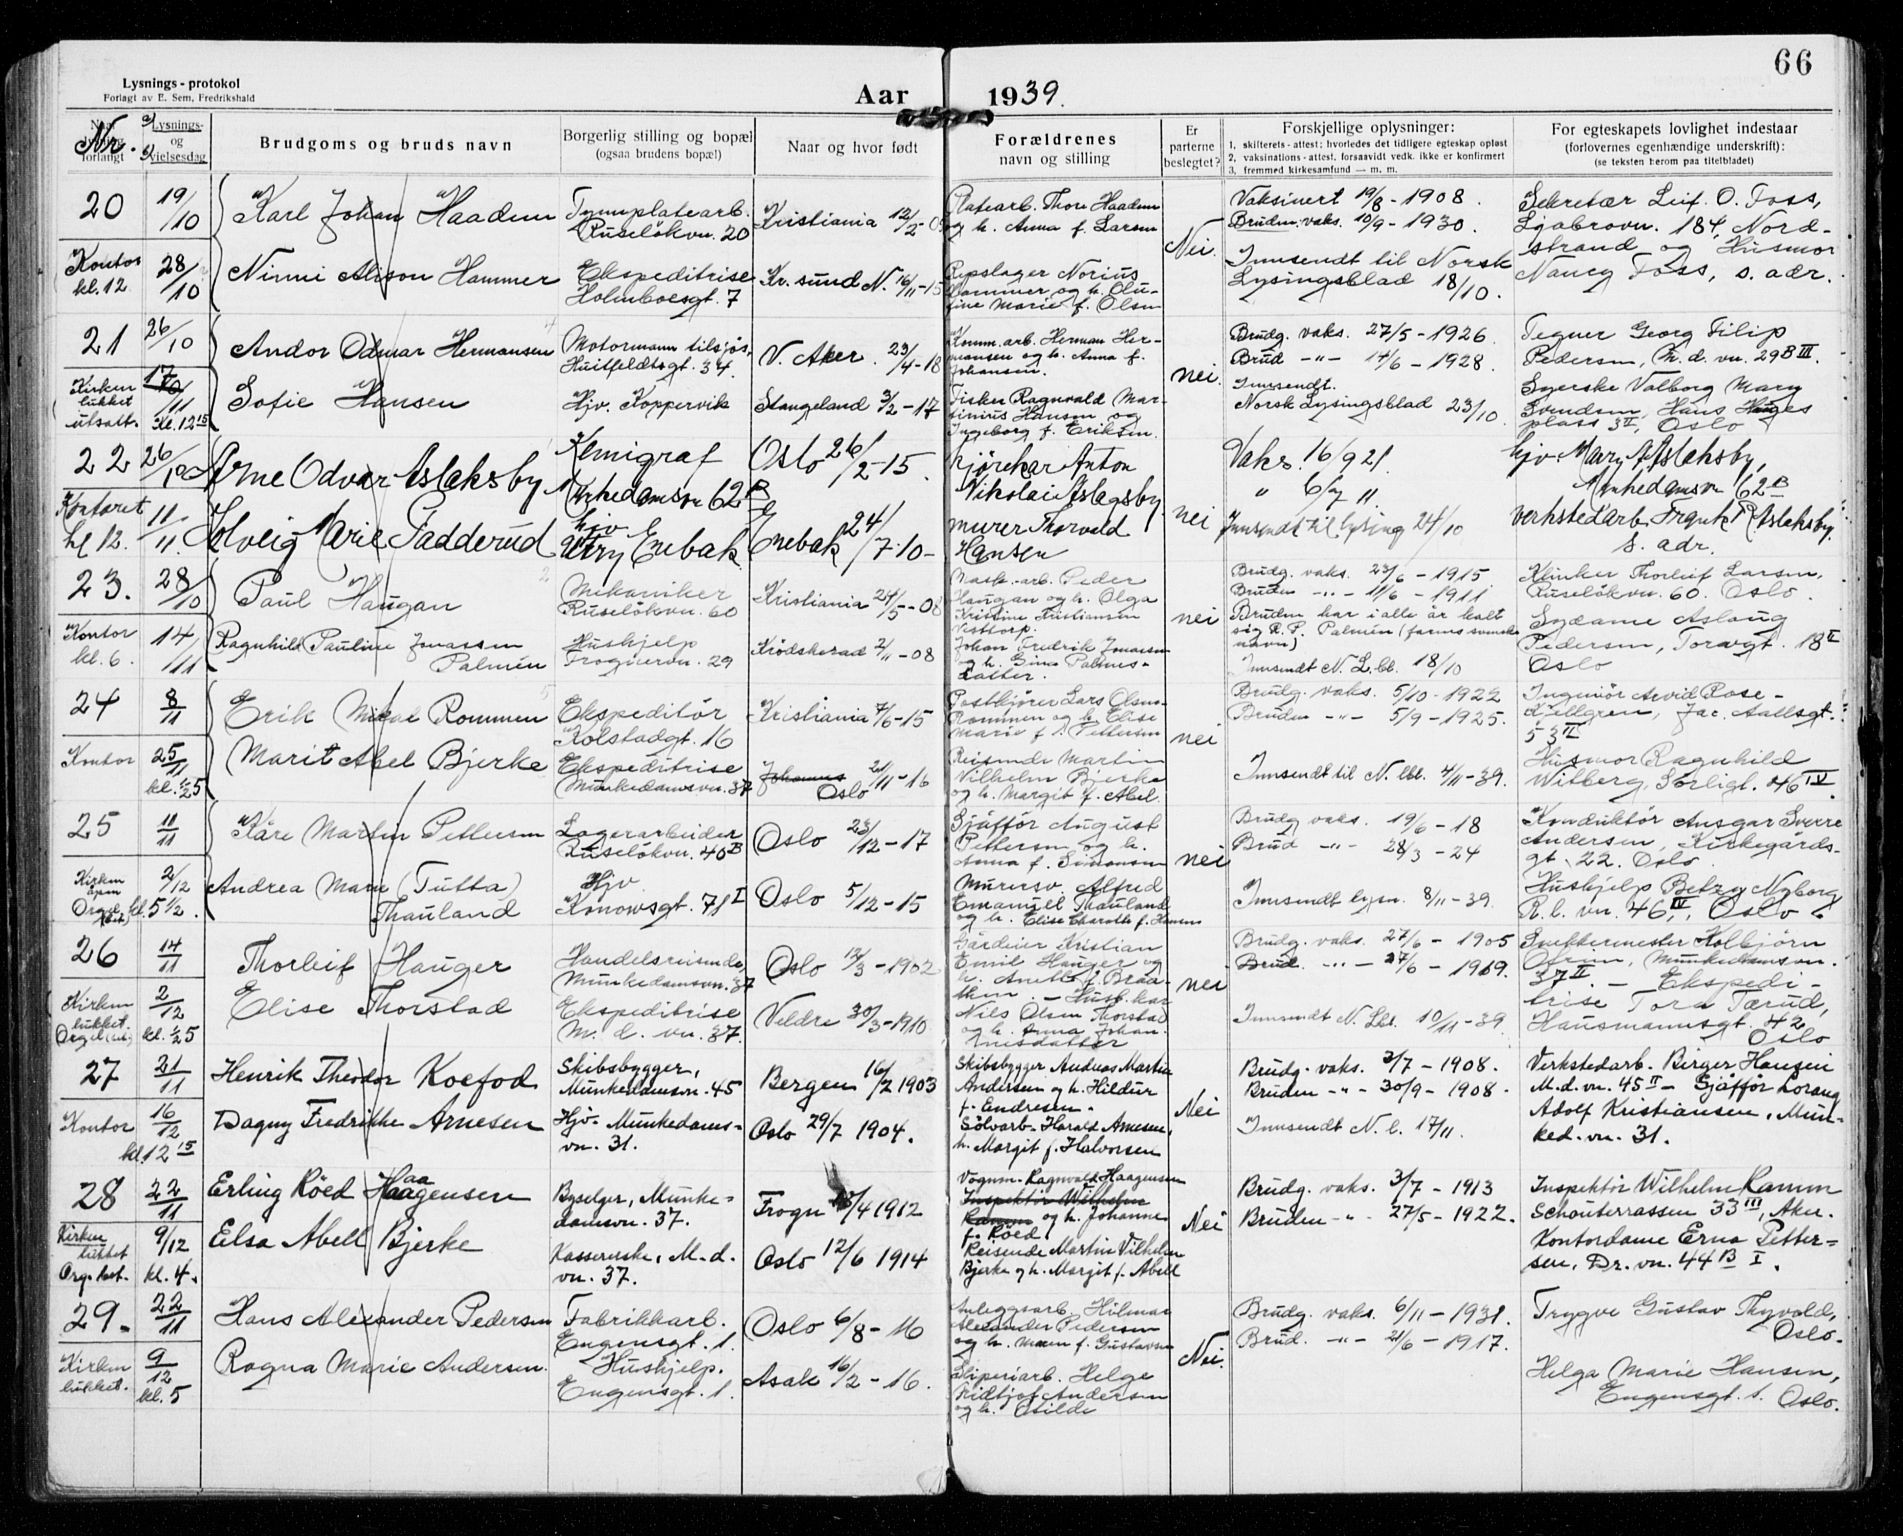 66
Lysnings-protokol
Forlagt av E. Sem, Fredrikshald
Aar 1939.
Nr.
Lysnings- og vielsesdag
Brudgoms og bruds navn
Borgerlig stilling og bopæl
(ogsaa brudens bopæl)
Naar og hvor født
Forældrenes
navn og stilling
Er
parterne
beslegtet?
Forskjellige oplysninger:
1, skilterets-attest: hvorledes det tidligere egteskap opløst
2, vaksinations-attest, forsaavidt vedk. ikke er konfirmert
3, fremmed kirkesamfund — m. m.
For egteskapets lovlighet indestaar
(forlovernes egenhændige underskrift):
(se teksten herom paa titelbladet)
20 19/10 Karl Johan Haadem
Tynnplatearb.
Ruseløkvn. 20
Kristiania 12/2-09
Platearb. Thore Haadem
og h. Anna f. Larsen
Nei
Vaksinert 19/8-1908.
Bruden vaks. 10/9-1930.
Sekretær Leif O. Foss,
Ljabrovn. 184, Nord-
strand og Husmor
Nancy Foss, s. adr.
Kontor kl. 12 28/10
Ninni Alison Hammer
Ekspeditrise
Holmboesgt. 7
Kr. sund N. 16/11-15
Repslager Norius
Hammer og h. Olu-
fine Marie f. Olsen
Innsendt til Norsk
Lysingsblad 18/10.
21 26/10 Andor Odmar Hermansen
Motormann tilsjøs,
Huitfeldtsgt. 34.
V. Aker. 23/4-18
Komm.arb. Herman Her-
mansen og h. Anna f.
Johansen.
nei.
Brudg. vaks. 27/5-1926.
Brud -"- 14/6-1928.
Tegner Georg Filip
Pedersen, M. d. vn. 29B III.
Kirken lukket utsatt. 17/11 Kl. 12 15
Sofie Hansen
Hjv. Koppervik
Stangeland 3/2-17
Fisker Ragnvald Mar-
tinius Hansen og
Ingeborg f. Eriksen.
Innsendt.
Norsk Lysingsblad 23/10.
Syerske Valborg Mary
Svendsen, Hans Hauges
plass 3 II, Oslo
22 26/10 Arne Odvar Aslaksby
Kemigraf
Munkedamsvn 62 B
Oslo 26/2-15.
Kjørekar Anton
Nikolai Aslagsby
nei
Vaks. 16/9 21.
" 6/7 11.
Innsendt til lysing 24/10
hjv. Mary Aslaksby,
Munkedamsvn 62 B
Verkstedarb. Frank R. Aslaksby.
s. adr.
Kontoret kl 12. 11/11.
Solveig Marie Gadderud
hjv
Ytry Enebak
Enebak 24/7-10-
murer Thorvald
Hansen
23. 28/10 Paul Haugan
Mekaniker
Ruseløkvn. 60
Kristiania 24/5-08
Mask.-arb. Peder
Haugan og h. Olga
Kristine Kristiansen
nei
Brudg. vaks. 23/6-1915
Bruden -"- 11/6-1911
Bruden har i alle år kalt
sig R. P. Palmén
Innsendt N. L.bl. 18/10
Klinker Thorleif Larsen,
Ruseløkvn. 60. Oslo.
Sydame Aslaug
Pedersen, Torvgt. 18 II
Oslo
Kontor kl. 6. 14/11
Ragnhild Pauline Jonassen
Palmén
Hushjelp
Frognervn. 29
Krødsherad 2/11-08
Johan Fredrik Jonassen
og h. Gina Palmes-
datter.
24 8/11 Erik Mikal Rommen
Ekspeditør
Kolstadgt. 16
Kristiania 7/6-15
Postkjører Lars Olsen-
Rommen og h. Elise
Marie f. Pettersen
nei
Brudg. vaks. 5/10-1922
Bruden -"- 5/9-1925.
Ingeniør Arvid Rose-
Kjellgren, Jac. Aallsgt.
53 II
Kontor 25/11 kl. ½5
Marit Abel Bjerke
Ekspeditrise
Munkedamsvn. 37
Oslo 21/11-16
Reisende Martin
Vilhelm Bjerke
og h. Margit f. Abel.
Innsendt til N. lbl. 4/11-39.
Husmor Ragnhild
Witberg, Sorligt. 46 IV.
25 11/11 Kåre Martin Pettersen
Lagerarbeider
Ruseløkvn. 40 B
Oslo 23/12-17
Sjåffør August
Pettersen og h.
Anna f. Simonsen
nei
Brudg. vaks. 19/6-18
Brud -"- 28/3-24
Konduktør Ansgar Sverre
Andersen, Kirkegårds-
gt. 22. Oslo.
Kirken åpen Orgel kl. 2/12 5½.
Andrea Marie (Tutta)
Thauland
Hjv.
Konowsgt. 71 I
Oslo 5/12-15
Murersv. Alfred
Emanuel Thauland
og h. Elise Charlotte f. Hansen
Innsendt lysn. 8/11-39.
Hushjelp Betzy Nyborg
R. l. vn. 46 IV, Oslo.
26 14/11 Thorleif Hauger
Handelsreisende
Munkedamsvn. 37
Oslo 12/3-1902
Gårdeier Kristian
Emil Hauger og
h. Anette f. Braa-
then.
nei
Brudg. vaks. 27/6-1905
Brud. -"- 27/6-1919.
Snekkermester Kolbjørn
Munkedamsvn.
37 II. - Ekspedi-
trise Tora Tærud,
Hausmannsgt. 42
Oslo
Kirken lukket. Orgel 2/12 kl. ½5
Elise Thorstad
Ekspeditrise
M. d. vn. 37.
Veldre 30/3-1910
Nils Olsen Thorstad
og h. Anna Johan-
nesdatter
Innsendt N. Lbl. 10/11-39
27 21/11 Henrik Theodor Koefod
Skibsbygger,
Munkedamsvn. 45
Bergen 16/7 1903
Skibsbygger Andreas Martin
Andersen og h. Hildur
f. Endresen.
Nei
Brudg. vaks. 3/7-1908.
Bruden -"- 30/9-1908.
Verkstedarb. Birger Hansen
M. d. vn. 45 II - Sjåffør Lorang
Adolf Kristiansen, Mun-
ked. vn. 31.
Kontor kl. 12 15 16/12
Dagny Fredrikke Arnesen
Hjv. Munkedams-
vn. 31.
Oslo 29/7 1904.
Sølvarb. Harald Arnesen,
h. Margit f. Halvorsen
Innsendt N. l. 17/11.
28 22/11 Erling Røed Haagensen
Byselger, Munke-
damsvn. 37.
Frogn 13/4 1912
Vognm. Ragnvald Haagensen
Inspektør Wilhelm
Ramm og h. Johanne
f. Røed
Nei
Brudg. vaks. 3/7-1913
Bruden -"- 27/5-1922.
Inspektør Wilhelm Ramm
Schouterrassen 33 III, Aker.
Kontordame Erna Petter-
sen, Dr. vn. 44 B I.
Kirken lukket Org. 9/12 kl. 4.
Elsa Abell Bjerke
Kassererske, M. d.
vn. 37.
Oslo 12/6 1914
Reisende Martin Vilhelm
Bjerke og h. Margit f. Abell
29. 22/11 Hans Alexander Pedersen
Fabrikkarb.
Engensgt. 1.
Oslo 6/8-16
Anleggsarb. Hilmar
Alexander Pedersen
og h. Maren f. Gustavsen
Nei.
Brudg. vaks. 6/11-1931.
Brud. -"- 21/6-1917.
Trygve Gustav Thyvold,
Oslo.
Kirken lukket. 9/12 kl. 5
Ragna Marie Andersen.
Hushjelp.
Engensgt. 1.
Asak 16/2-16.
Sliperiarb. Helge
Fridtjof Andersen
og h. Otilde
Helga Marie Hansen,
Engensgt. 1. Oslo.